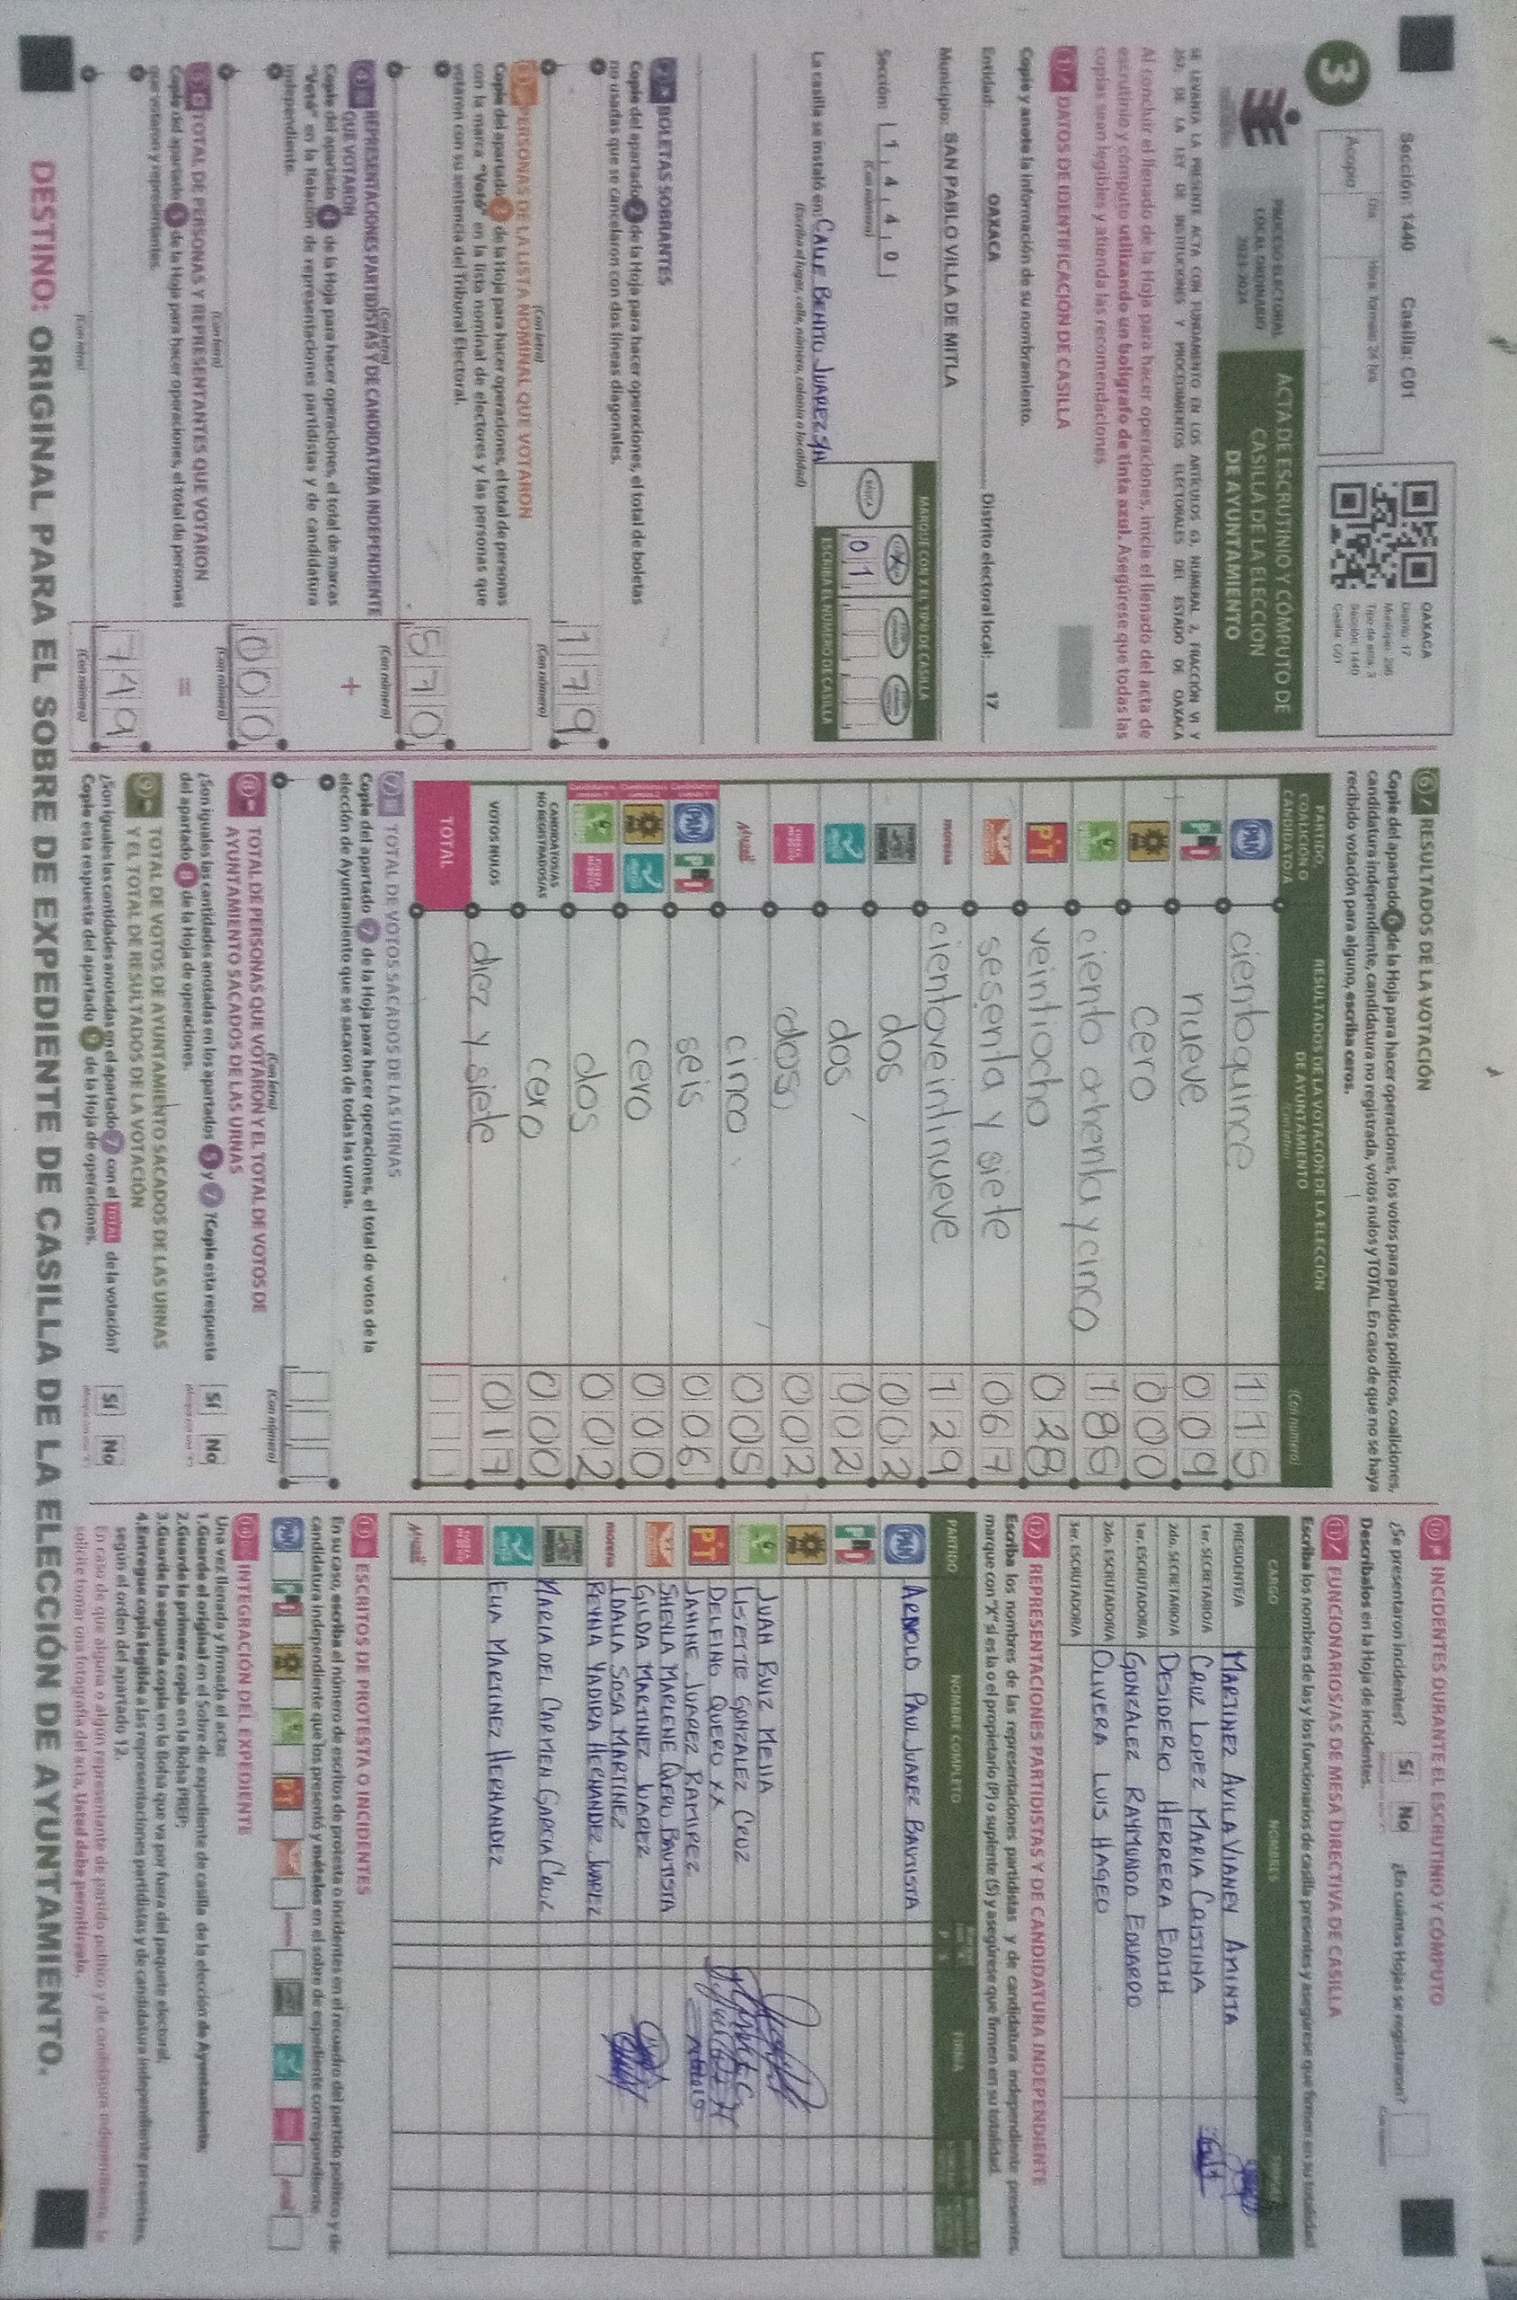 Sección: 1440 Casilla: C01
3
Día Hora: formato 24 hrs
Acopio
OAXACA
Distrito: 17
Tipo de acta: 3
Sección: 1440
Casilla: C01
PROCESO ELECTORAL
LOCAL ORDINARIO
2023-2024
ACTA DE ESCRUTINIO Y CÓMPUTO DE
CASILLA DE LA ELECCIÓN
DE AYUNTAMIENTO
SE LEVANTA LA PRESENTE ACTA CON FUNDAMENTO EN LOS ARTÍCULOS 63, NUMERAL 2, FRACCIÓN VI Y
DE LA LEY DE INSTITUCIONES Y PROCEDIMIENTOS ELECTORALES DEL ESTADO DE OAXACA
Al concluir el llenado de la Hoja para hacer operaciones, inicie el llenado del acta de
escrutinio y cómputo utilizando un bolígrafo de tinta azul. Asegúrese que todas las
copias sean legibles y atienda las recomendaciones.
1 DATOS DE IDENTIFICACIÓN DE CASILLA
Copie y anote la información de su nombramiento.
Entidad: OAXACA Distrito electoral local: 17
Municipio: SAN PABLO VILLA DE MITLA
Sección: 1 4 4 0
(Con número)
MARQUE CON X EL TIPO DE CASILLA
BÁSICA
0 1
ESCRIBA EL NÚMERO DE CASILLA
La casilla se instaló en: CALLE BENITO JUAREZ S/N
(Escriba el lugar, calle, número, colonia o localidad)
2 BOLETAS SOBRANTES
Copie del apartado 2 de la Hoja para hacer operaciones, el total de boletas
no usadas que se cancelaron con dos líneas diagonales.
1 7 9
(Con letra) (Con número)
3 PERSONAS DE LA LISTA NOMINAL QUE VOTARON
Copie del apartado 3 de la Hoja para hacer operaciones, el total de personas
con la marca "Votó" en la lista nominal de electores y las personas que
votaron con su sentencia del Tribunal Electoral.
5 7 0
(Con letra) (Con número)
4 REPRESENTACIONES PARTIDISTAS Y DE CANDIDATURA INDEPENDIENTE
QUE VOTARON
+
Copie del apartado 4 de la Hoja para hacer operaciones, el total de marcas
"Votó" en la Relación de representaciones partidistas y de candidatura
independiente.
0 0 0
(Con letra) (Con número)
5 TOTAL DE PERSONAS Y REPRESENTANTES QUE VOTARON
=
Copie del apartado 5 de la Hoja para hacer operaciones, el total de personas
que votaron y representantes.
7 4 9
(Con letra) (Con número)
6 RESULTADOS DE LA VOTACIÓN
Copie del apartado 6 de la Hoja para hacer operaciones, los votos para partidos políticos, coaliciones,
candidatura independiente, candidatura no registrada, votos nulos y TOTAL. En caso de que no se haya
recibido votación para alguno, escriba ceros.
PARTIDO, COALICIÓN O CANDIDATO/A RESULTADOS DE LA VOTACIÓN DE LA ELECCIÓN DE AYUNTAMIENTO (Con letra) (Con número)
PAN ciento quince 1 1 5
PRI nueve 0 0 9
cero 0 0 0
ciento ochenta y cinco 1 8 6
PT veintiocho 0 28
sesenta y siete 0 6 7
morena ciento veintinueve 1 2 9
dos 0 0 2
dos 0 0 2
dos 0 0 2
cinco 0 0 5
PAN PRI seis 0 0 6
cero 0 0 0
dos 0 0 2
CANDIDATOS/AS NO REGISTRADOS/AS cero 0 0 0
VOTOS NULOS diez y siete 0 1 7
TOTAL
7 TOTAL DE VOTOS SACADOS DE LAS URNAS
Copie del apartado 7 de la Hoja para hacer operaciones, el total de votos de la
elección de Ayuntamiento que se sacaron de todas las urnas.
(Con letra) (Con número)
8 TOTAL DE PERSONAS QUE VOTARON Y EL TOTAL DE VOTOS DE
AYUNTAMIENTO SACADOS DE LAS URNAS
¿Son iguales las cantidades anotadas en los apartados 5 y 7? Copie esta respuesta
del apartado 8 de la Hoja de operaciones.
Sí No
9 TOTAL DE VOTOS DE AYUNTAMIENTO SACADOS DE LAS URNAS
Y EL TOTAL DE RESULTADOS DE LA VOTACIÓN
¿Son iguales las cantidades anotadas en el apartado 7 con el TOTAL de la votación?
Copie esta respuesta del apartado 9 de la Hoja de operaciones.
Sí No
10 INCIDENTES DURANTE EL ESCRUTINIO Y CÓMPUTO
¿Se presentaron incidentes? Sí No ¿En cuántas Hojas se registraron?
Descríbalos en la Hoja de incidentes.
11 FUNCIONARIOS/AS DE MESA DIRECTIVA DE CASILLA
Escriba los nombres de las y los funcionarios de casilla presentes y asegúrese que firmen en su totalidad
CARGO NOMBRES
PRESIDENTE/A MARTINEZ AVILA VIANEY AMINTA
1er. SECRETARIO/A CRUZ LOPEZ MARIA CRISTINA
2do. SECRETARIO/A DESIDERIO HERRERA EDITH
1er. ESCRUTADOR/A GONZALEZ RAYMUNDO EDUARDO
2do. ESCRUTADOR/A OLIVERA LUIS HAGEO
3er. ESCRUTADOR/A
12 REPRESENTACIONES PARTIDISTAS Y DE CANDIDATURA INDEPENDIENTE
Escriba los nombres de las representaciones partidistas y de candidatura independiente presentes,
marque con "X" si es la o el propietario (P) o suplente (S) y asegúrese que firmen en su totalidad.
PARTIDO NOMBRE COMPLETO P S FIRMA
PAN ARNOLD PAUL JUAREZ BAUTISTA
PRI
JUAN RUIZ MEJIA
LISETTE GONZALEZ CRUZ
PT DELFINO QUERO XX
JANINE JUAREZ RAMIREZ
SHEYLA MARLENE QUERO BAUTISTA
GILDA MARTINEZ JUAREZ
morena IDALIA SOSA MARTINEZ
REYNA YADIRA HERNANDEZ JUAREZ
MARIA DEL CARMEN GARCIA CRUZ
ELIA MARTINEZ HERNANDEZ
13 ESCRITOS DE PROTESTA O INCIDENTES
En su caso, escriba el número de escritos de protesta o incidentes en el recuadro del partido político y de
candidatura independiente que los presentó y métalos en el sobre de expediente correspondiente.
PAN PRI PT
14 INTEGRACIÓN DEL EXPEDIENTE
Una vez llenada y firmada el acta:
1.Guarde el original en el Sobre de expediente de casilla de la elección de Ayuntamiento;
2.Guarde la primera copia en la Bolsa PREP;
3.Guarde la segunda copia en la Bolsa que va por fuera del paquete electoral;
4.Entregue copia legible a las representaciones partidistas y de candidatura independiente presentes,
según el orden del apartado 12.
En caso de que alguna o algún representante de partido político y de candidatura independiente, le
solicite tomar una fotografía del acta, Usted debe permitírselo.
DESTINO: ORIGINAL PARA EL SOBRE DE EXPEDIENTE DE CASILLA DE LA ELECCIÓN DE AYUNTAMIENTO.